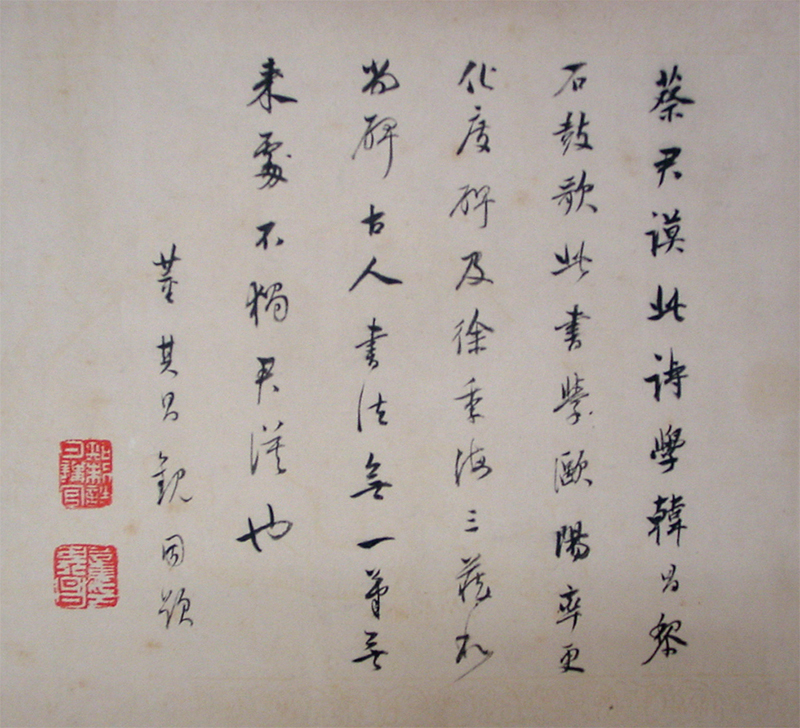 蔡君謨此詩學韓昌黎
石鼓歌此書學歐陽率更
化度碑及徐季海三藏和
尚碑古人書法無一筆無
來處不獨君謨也
董其昌觀因題
知制誥日講官